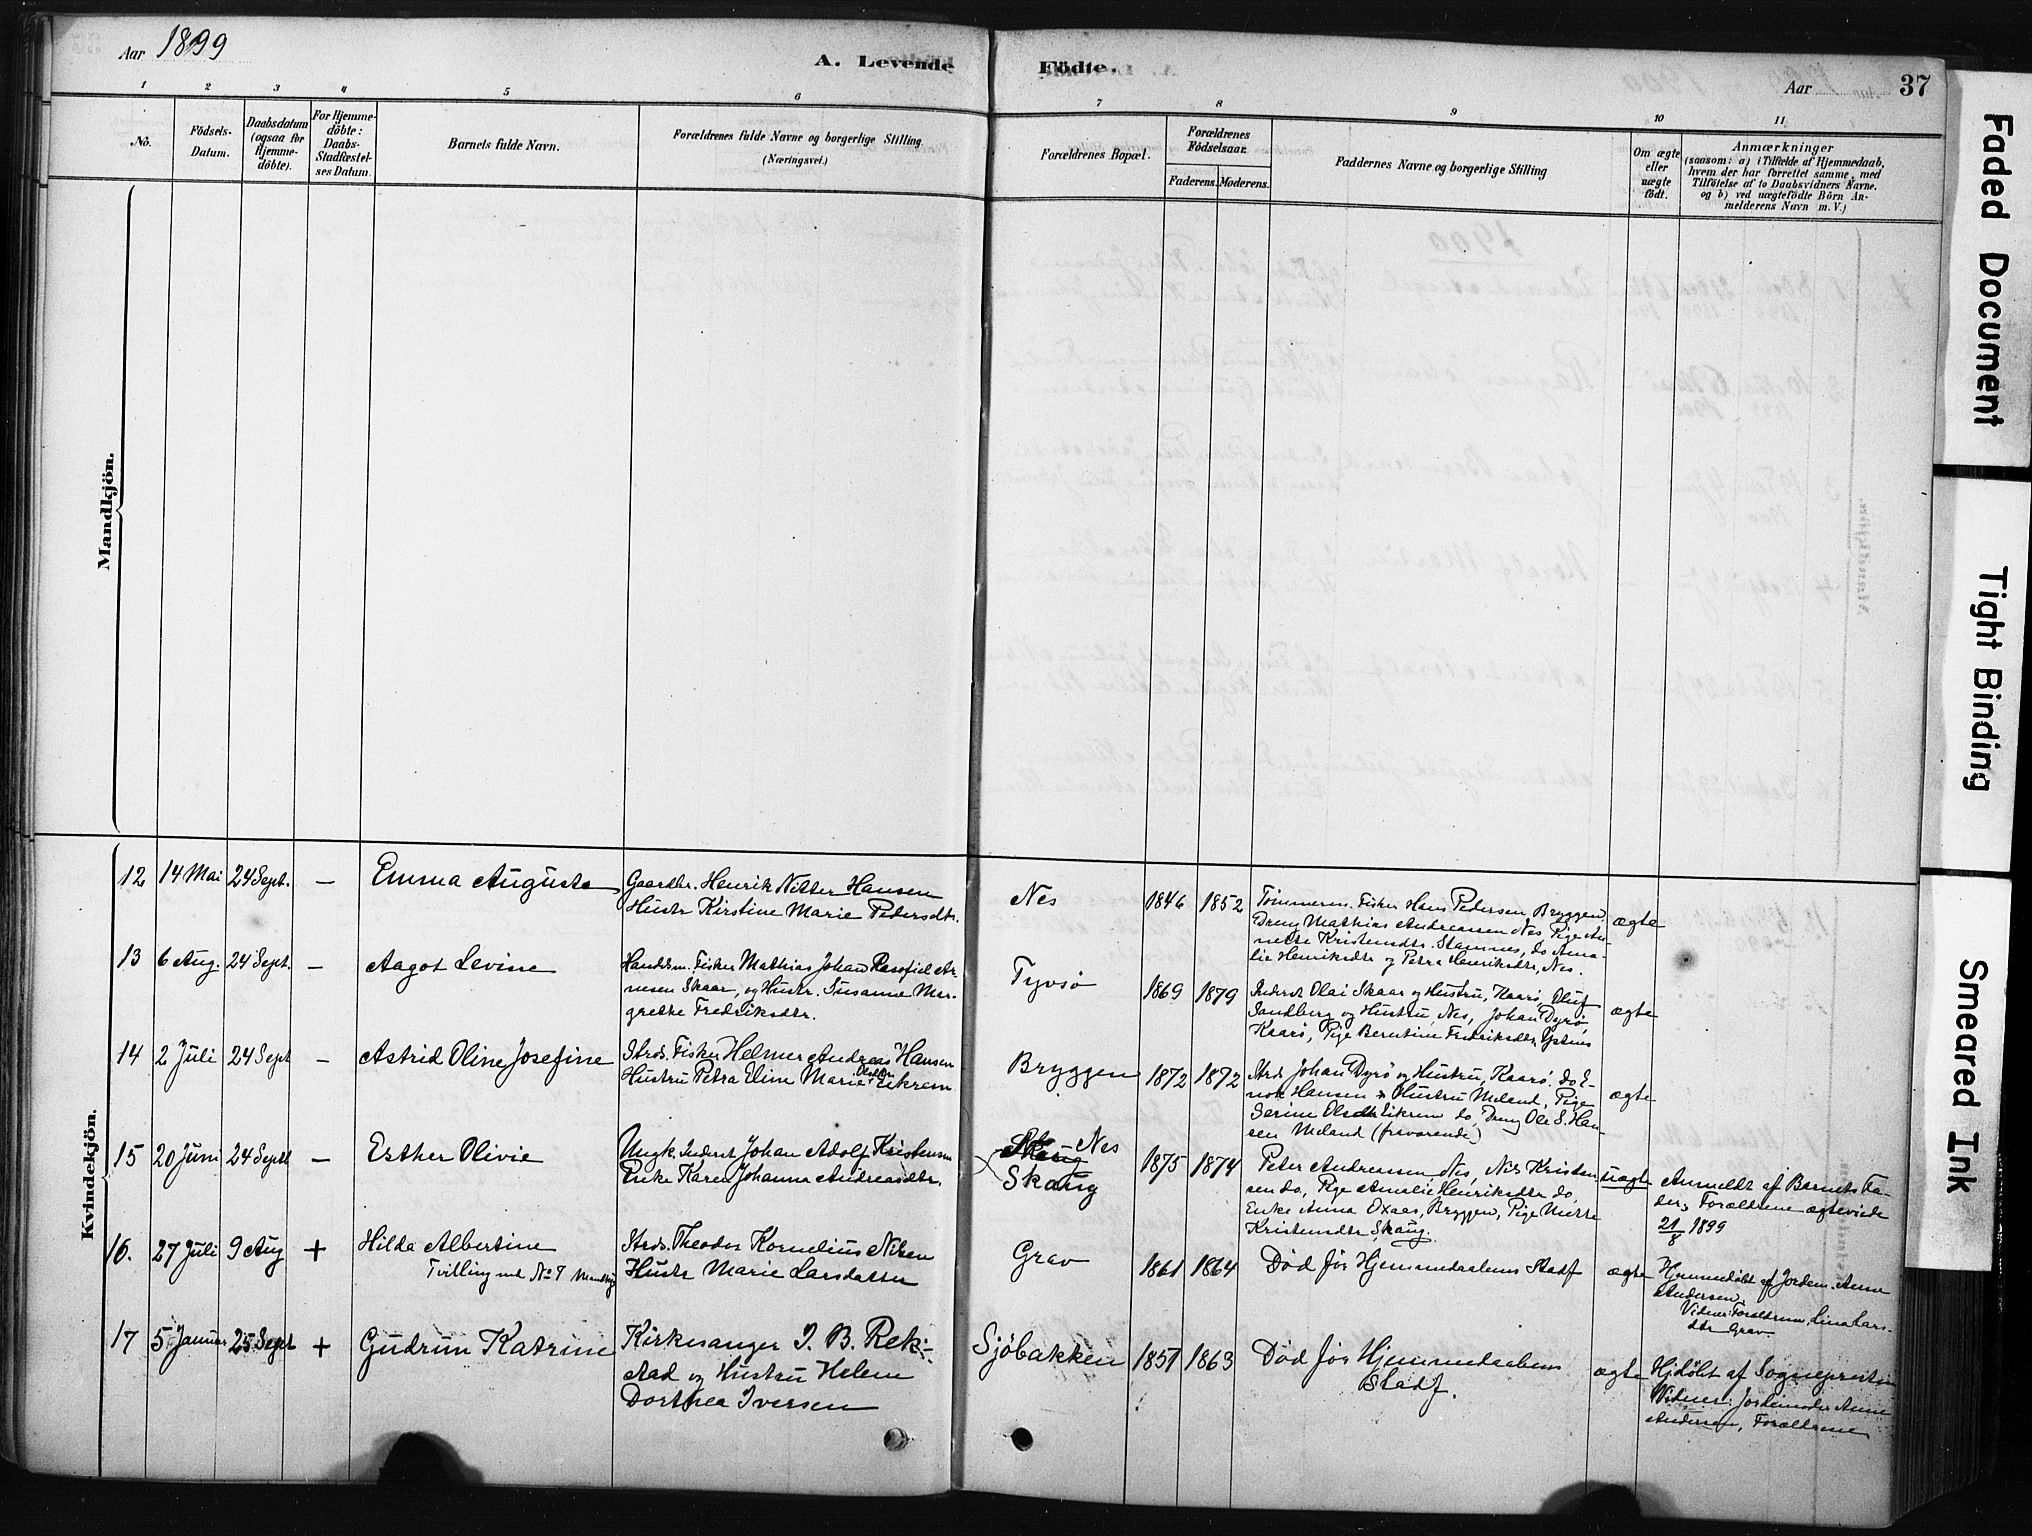 Aar 1899
A. Levende Födte.
Aar 37
1 2 3 4 5 6 7 8 9 10 11
No.
Födsels-
Datum.
Daabsdatum
(ogsaa for
Hjemme-
döbte).
For Hjemme-
döbte:
Daabs-
Stadfæstel-
ses Datum.
Barnets fulde Navn.
Forældrenes fulde Navne og borgerlige Stilling
(Næringsvei.)
Forældrenes Bopæl.
Forældrenes
Födselsaar.
Faderens. Moderens.
Faddernes Navne og borgerlige Stilling
Om ægte
eller
uægte
födt.
Anmærkninger
(saasom: a) i Tilfælde af Hjemmedaab,
hvem der har forrettet samme, med
Tilföielse af to Daabsvidners Navne.
og b) ved uægtefödte Börn An-
melderens Navn m. V.)
Mandkjön.
Kvindekjön.
12 14 Mai 24 Sept. — Emma Augusta
Gaardbr. Henrik Nitter Hansen
Hustr Kirstine Marie Pedersdtr.
Nes 1846 1852
Tømmerm. Fisker Hans Pedersen Bryggen,
Dreng Mathias Andreassen Nes Pige An-
nette Kristensdtr. Stamnes, do Ama-
lie Henriksdtr og Petra Henriksdtr, Nes.
ægte
13 6 Aug. 24 Sept. — Aagot Levine
Handelsm. Fisker Mathias Johan Ar-
nesen Skaar, og Hustr. Susanne Mar-
grethe Fredriksdtr.
Tyvsø 1869 1879
Inderst Olai Skaar og Hustru, Kaarø, Oluf
Sandberg og Hustru, Nes, Johan Dyrø,
Kaarø, Pige Berntine Fredriksdtr
ægte
14 2 Juli 24 Sept — Astrid Oline Josefine
Strds. Fisker Helmer Andreas Hansen
Hustru Petra Eline Marie Olsdtr Eikrem
Bryggen 1872 1872
Strds Johan Dyrø og Hustru, Kaarø. do E-
nok Hansen & Hustru Meland, Pige
Serine Olsdtr Eikrem do, Dreng Ole S. Han-
sen Meland (fraværende)
ægte
15 20 Juni 24 Sept — Esther Olivie
Ungk. Inderst Johan Adolf Kristensen
Enke Karen Johanna Andreasdtr.
Nes
Skaug 1875 1874
Peter Andreassen Nes, Nils Kristen
sen do, Pige Amalie Henriksdtr do,
Enke Anna Oxaas, Bryggen, Pige Mette
Kristensdtr Skaug.
uægte
Anmeldt af Barnets Fa-
der, Forældrene ægteviede
21/8 1899
16. 27 Juli 9 Aug + Hilda Albertine
Tvilling med No 7 Mandkj
Strds. Theodor Kornelius Nilsen
Hustr Marie Larsdatter
Grav 1861 1864 Død før Hjemmedaabens Stadf ægte
Hjemmedøbt af Jordem. Anne
Andersen.
Vidner: Forældrene, Lina Lars-
dtr Grav
17 5 Januar 25 Sept + Gudrun Katrine
Kirkesanger I. B. Rek-
stad og Hustru Helene
Dorthea Iversen
Sjöbakken 1851 1863 Død før Hjemmedaabens
Stadf.
ægte
Hjdøbt af Sognepresten
Vidner: Jordemoder Anne
Andersen, Forældrene
Faded Document
Tight Binding
Smeared Ink